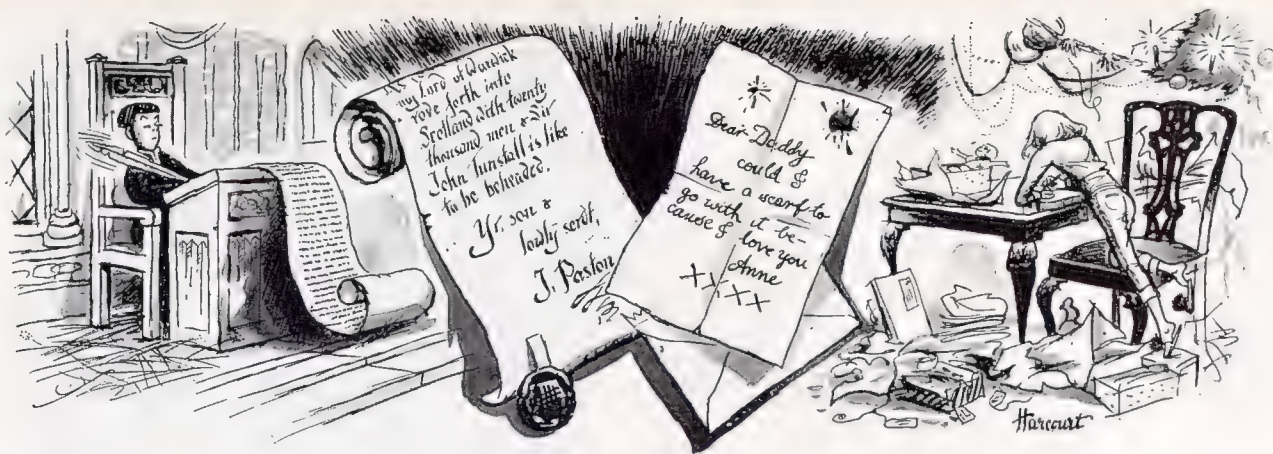 my Lord of Warwick
rode forth into
Scotland with twenty
thousand men & Sir
John Tunstall is like
to be beheaded.
Yr. son &
lowly servt,
J. Paston
Dear Daddy
could I
have a scarf to
go with it be-
cause I love you
Anne
XXXX
Harcourt